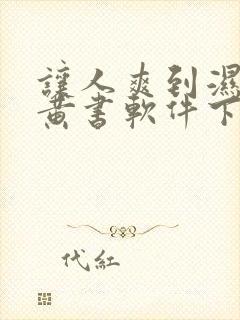 讓人爽到濕
黃書軟件下
代紅